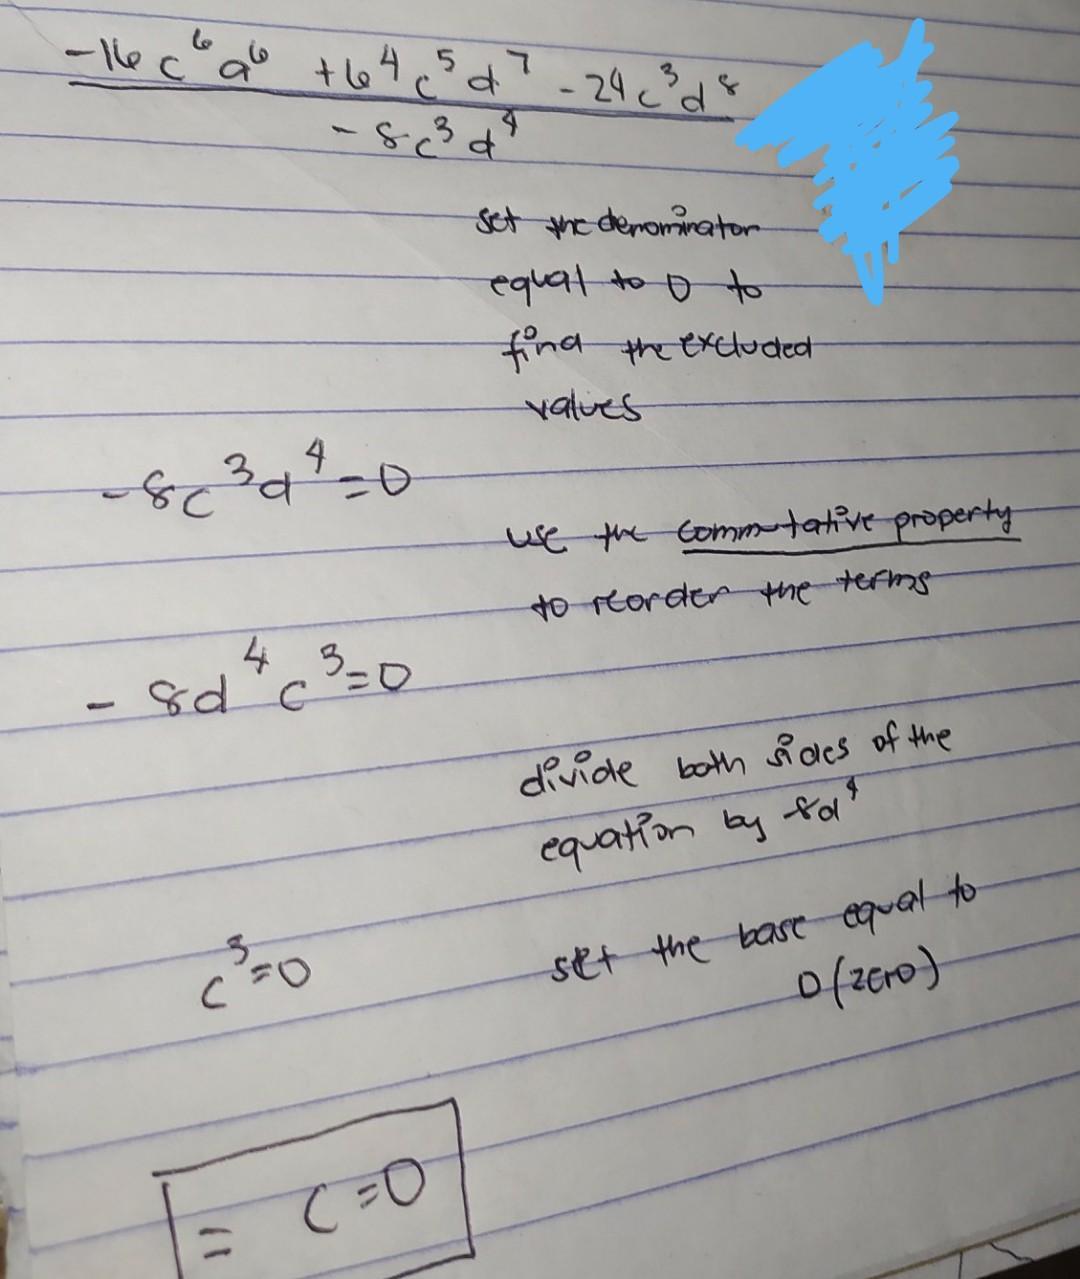 -16c⁶d⁶ +6⁴c⁵d⁷ -24c³d⁸
-8c³d⁴
set the denominator
equal to 0 to
find the excluded
values
-8c³d⁴=0
use the commutative property
to reorder the terms
- 8d⁴c³=0
divide both sides of the
equation by -8d⁴
c³=0
set the base equal to
0 (zero)
= c=0